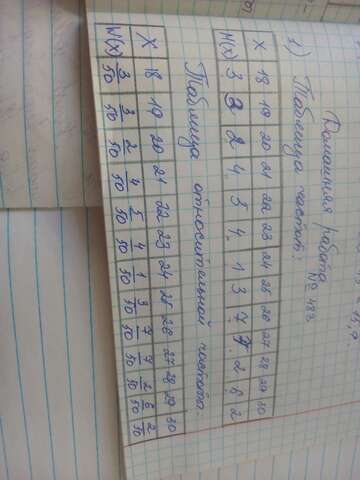 Домашняя работа № 483
1) Таблица частот:
X 18 19 20 21 22 23 24 25 26 27 28 29 30
N(x) 3 3 2 4 5 4 1 3 7 7 2 6 2
Таблица относительной частоты.
X 18 19 20 21 22 23 24 25 26 27 28 29 30
N(x) 3/50 3/50 2/50 4/50 5/50 4/50 1/50 3/50 7/50 7/50 2/50 6/50 2/50